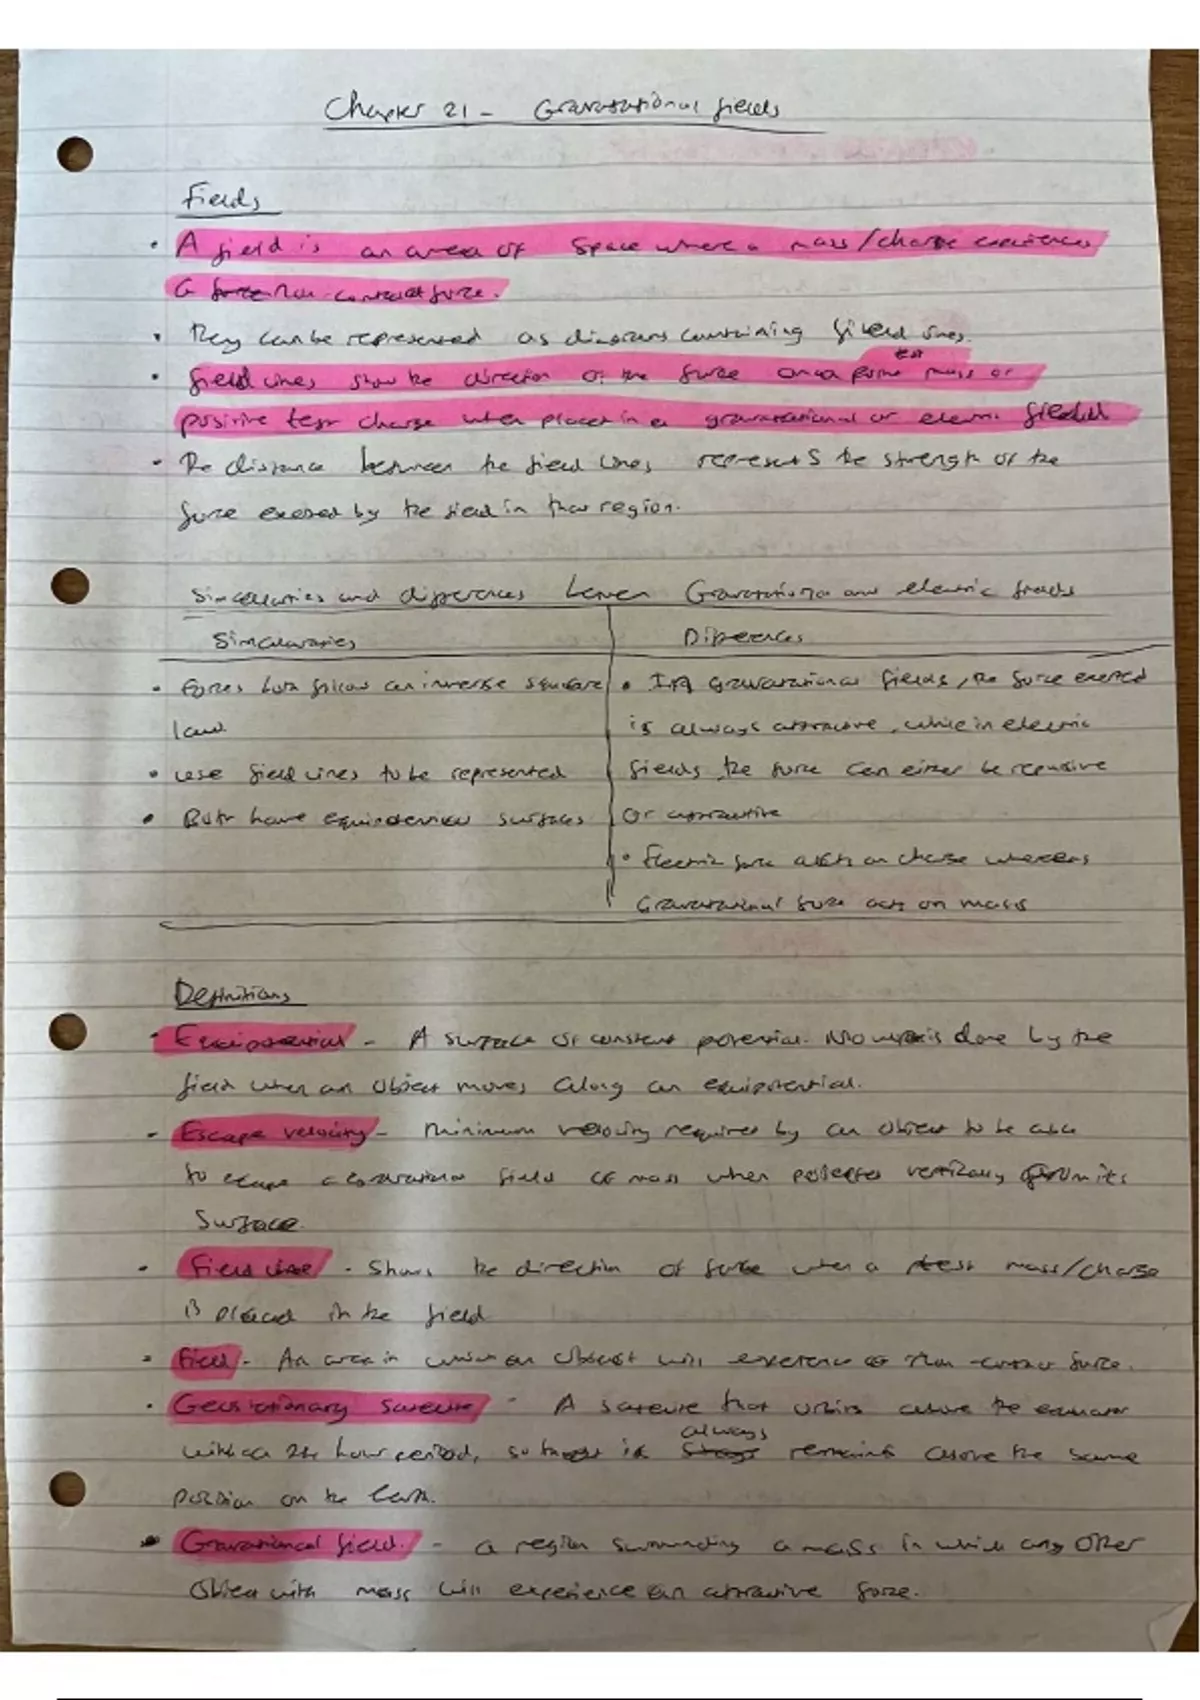 Chapter 21 - Gravatational fields
Fields
• A field is an area of space where a mass/charge experiences
a force non-contact force.
• They can be represented as diagrams containing field lines.
• field lines show the direction of the force on a point test mass or
positive test charge when placed in a gravatational or electric field
• The distance between the field lines represents the strength of the
force exerted by the field in that region.
Similarities and differences between Gravatational and electric fields
Similarities Differences
• Forces both follow an inverse square law
• use field lines to be represented
• Both have equipotential surfaces
• In gravatational fields, the force exerted
is always attractive, while in electric
fields, the force can either be repulsive
or attractive
• Electric force acts on charge whereas
Gravatational force acts on mass
Definitions
• Equipotential - A surface of constant potential. No work is done by the
field when an object moves along an equipotential.
• Escape velocity - Minimum velocity required by an object to be able
to escape a gravatational field of mass when projected vertically from its
surface.
• Field line - Shows the direction of force when a test mass/charge
is placed in the field
• Field - An area in which an object will experience a non-contact force.
• Geostationary satellite - A satellite that orbits above the equator
with a 24 hour period, so that it always remains above the same
position on the Earth.
• Gravatational field. - a region surrounding a mass in which any other
object with mass will experience an attractive force.